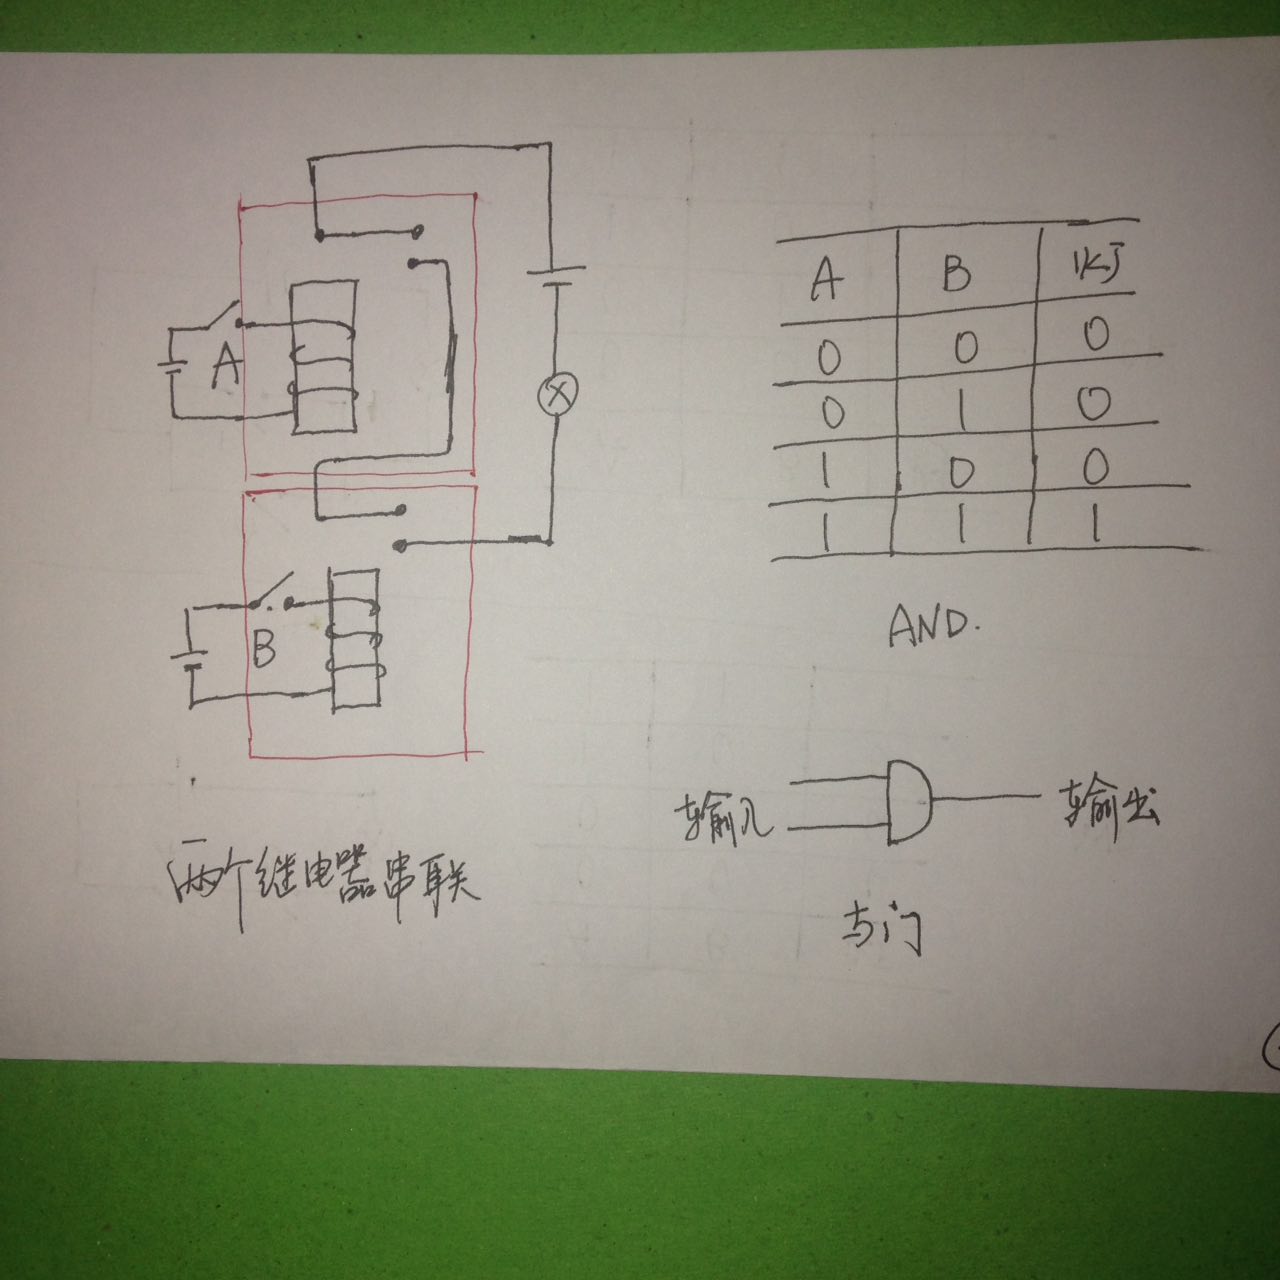 A
B
两个继电器串联
A B 火灯
0 0 0
0 1 0
1 0 0
1 1 1
AND.
输入 输出
与门